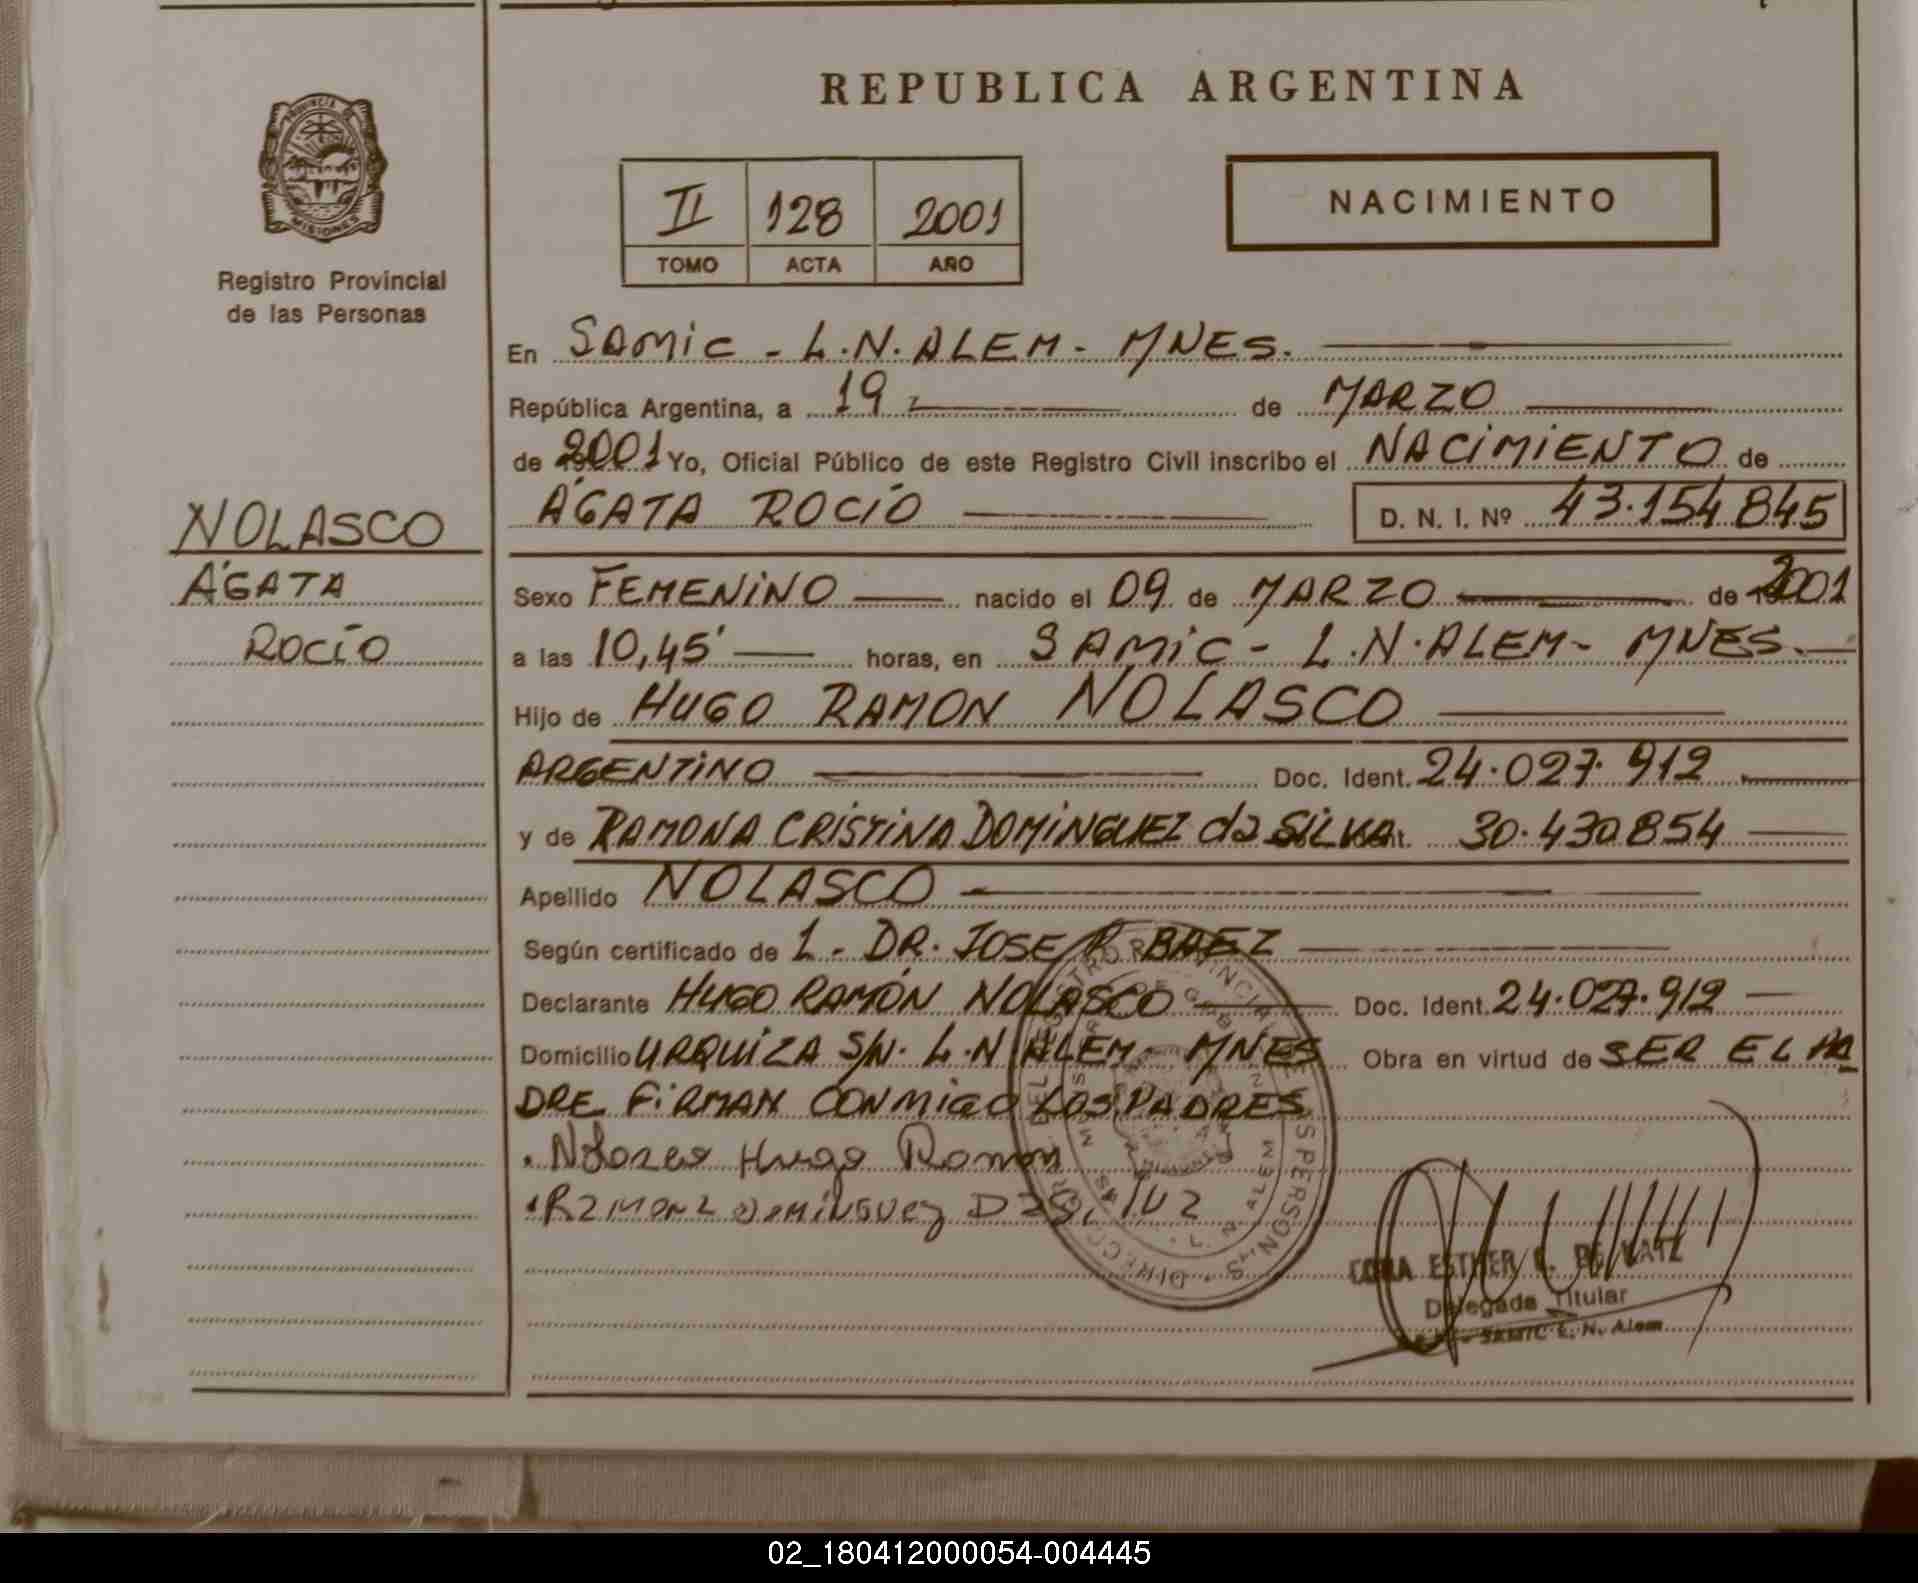 REPUBLICA ARGENTINA
PROVINCIA
MISIONES
Registro Provincial
de las Personas
II 128 2001
TOMO ACTA AÑO
NACIMIENTO
En SAMIC - L.N. ALEM - MNES.
República Argentina, a 19 de MARZO
de 2001 Yo, Oficial Público de este Registro Civil inscribo el NACIMIENTO de
ÁGATA ROCÍO D. N. I. Nº 43.154.845
NOLASCO
ÁGATA
ROCÍO
Sexo FEMENINO nacido el 09 de MARZO de 2001
a las 10,45' horas, en SAMIC - L.N. ALEM - MNES.
Hijo de HUGO RAMON NOLASCO
ARGENTINO Doc. Ident. 24.027.912
y de RAMONA CRISTINA DOMINGUEZ da SILVA 30.430.854
Apellido NOLASCO
Según certificado de 1 - DR. JOSE R. BAEZ
Declarante HUGO RAMÓN NOLASCO Doc. Ident. 24.027.912
Domicilio URQUIZA S/N. L.N. ALEM - MNES Obra en virtud de SER EL PA
DRE FIRMAN CONMIGO LOS PADRES
Nolasco Hugo Ramon
RAMONA DOMINGUEZ DA SILVA
CORA ESTHER DE KATZ
Delegada Titular
SAMIC L. N. Alem
02_180412000054-004445